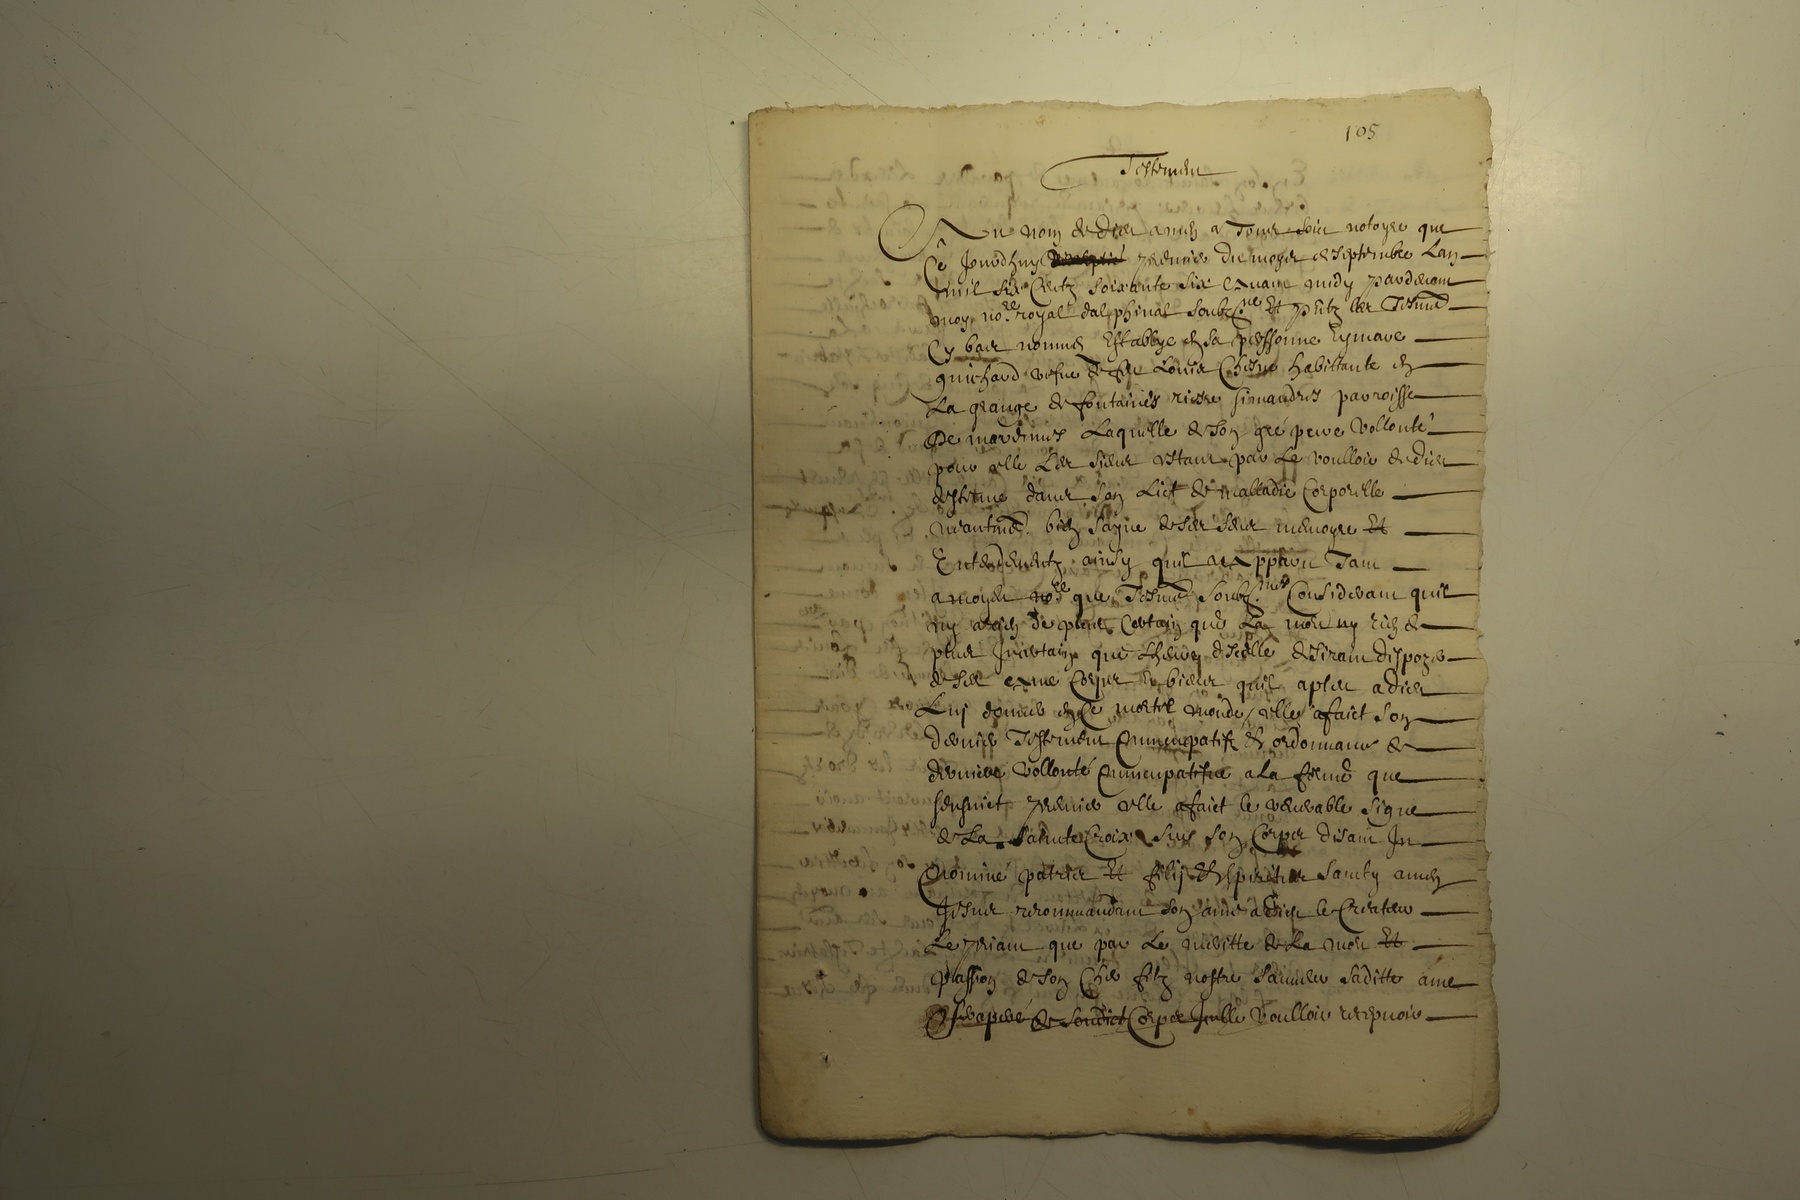 105
Testement
Au nom de dieu amen a Tous soit notoyre que
Ce Jourdhuy premier du moys de septembre Lan
mil six Centz soixante six avant midy pardevant
moy no.re royal dalphinal soubz.né Et presentz les Tesmo.
Cy bas nommes Establye en sa personne Eymare
guichard vefve de feu Louis habittante en
La grange de fontaines riere simandres parroisse
De marennes Laquelle de son gre pure Vollonté
pour elle Les siens estant par Le voulloir de dieu
destenue dans son Lict de malladie Corporelle
neantmo. bien sayne de ses sens memoyre Et
Entendementz ainsy quil a apparu Tant
a moyd. no.re que Tesmo. soubz.nes Considerant quil
ny a rien de plus Certain que La mort ny rien de
plus Incertain que Lheure dicelle desirant dispozer
de ses Corps Et biens quil a pleu a dieu
Luy donner en Ce mortel monde / elle a faict son
dernier Testement nuncupatif Et ordonnance de
derniere Vollonté nuncupatifve a La forme que
sensuict premier elle a faict le venerable signe
de La Saincte Croix sur son Corps disant In
Nomine patris Et filij Et spiritus sancty amen
Jesus recommandant son ame a dieu le Createur
Le priant que par Le meritte de La mort Et
passion de son Cher filz nostre sauveur saditte ame
separée de sondict Corps Icelle Voulloir recepvoir